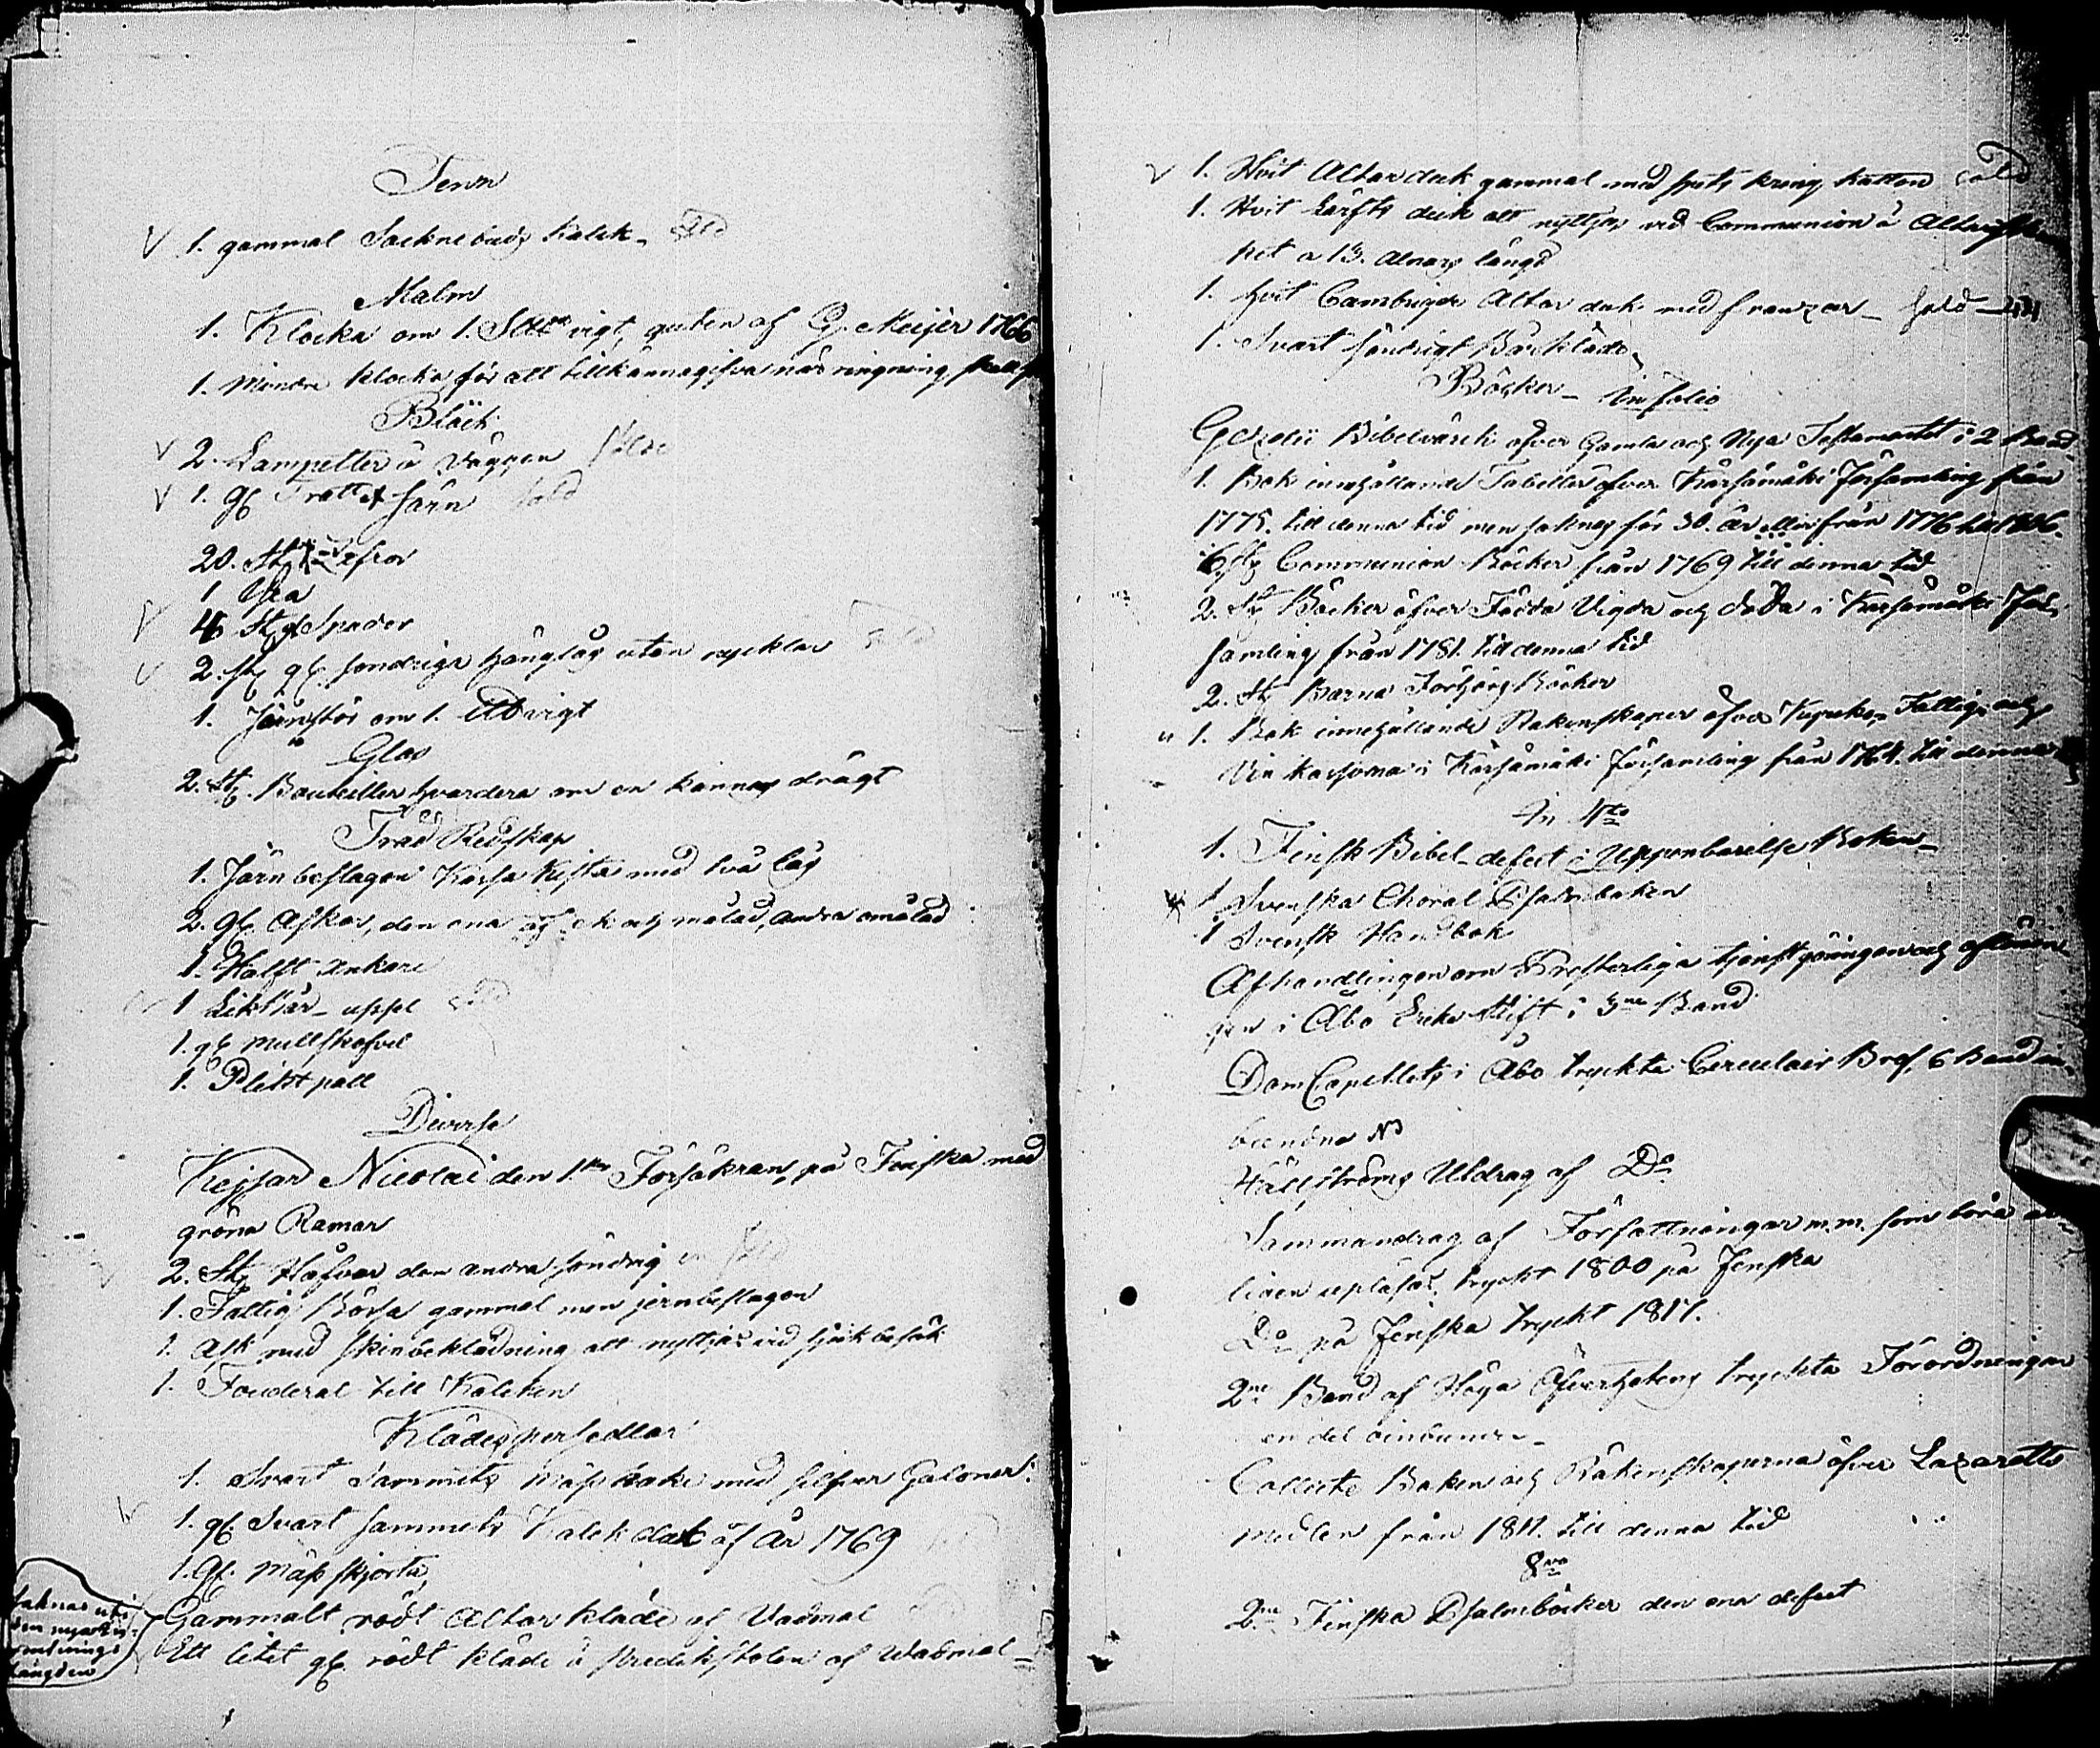 Tenn
1. gammal Socknebuds Kalk - såld
Malm
1. Klocka om 1. vigt, guten af G. Meijer 1766
1. Mindre klocka för att tillkännagifva när ringning skall
Bläck
2. Lampetter å väggen såld
1. gl. Järn såld
20. St
1
4 St gl Spader
2. st gl. söndriga hänglås utan nycklar såld
1. Järnstör om 1. vigt
Glas
2. St. Bouteiller hvardera om en kannas drägt
Träd Redskap
1. Järnbeslagen Kassa Kista med två lås
2. gl. Askar, den ena af ek och målad, andra omålad
1. Halft ankare
1 Likbår - såld
1. gl mullskofvel
1. Plikt pall
Diverse
Kejsar Nicolai den 1. Försäkran, på Finska med
gröna Ramar
2. St Håfvar den andra söndrig en såld
1. Fattig Bössa gammal men jernbeslagen
1. Ask med skinbeklädning att nyttjas vid sjukbesök
1. Fouderal till Kalken
Klädespersedlar
1. Svart Sammets Mässhake med silfver Galoner
1. gl. Svart sammets Kalk duk af År 1769
1. Gl. Mässskjorta
Gammalt rödt Altarkläde af Vadmal
Ett litet gl. rödt kläde å Predikstolen af Wadmal -
saknas uti
den nya
längden
1. Hvit Altarduk gammal med spets kring kanten såld
1. Hvit Lärfts duk att nyttjas vid Communion å
pet a 13. alnars längd
1. hvit Cambrigs Altar duk med franzar - såld
1. Svart söndrigt Bårkläde
Böcker - in folio
Gezelii Bibelvärck öfver Gamla och Nya Testamentet i 2 Band
1. Bok innehållande Tabeller öfver Kärsämäki församling från
1775. till denna tid men saknas för 30. år eller från 1776 till 1806.
6 st Communion Böcker från 1769 till denna tid
2. St Böcker öfver Födda Vigda och döda i Kärsämäki För-
samling från 1781. till denna tid
2. St Barna Förhörs Böcker
1. Bok innehållande Räkenskaper öfver Kyrko, Fattig och
Vin kassorna i Kärsämäki församling från 1764. till denna
In 4to
1. Finsk Bibel - defect i Uppenbarelse Boken -
1 Svenska Choral Psalmboken
1 Svensk Handbok
Afhandlingen om Presterliga tjenstgöringen och aflönin
gen i Åbo Erke Stift i 3ne Band
DomCapitlets i Åbo tryckta Circulair Bref, 6 Band in-
bundna
Hällströms Utdrag af Do
Sammandrag af Författningar m.m. som böra
ligen uplåsas, tryckt 1800 på Finska
Do på Finska tryckt 1817.
2ne Band af Höga Öfverhetens tryckta Förordningar
en del oinbundna -
Collecte Boken och Räkenskaperna öfver Lazaretts
medlen från 1811. till denna tid
8vo
2ne Finska Psalmböcker den ena defect